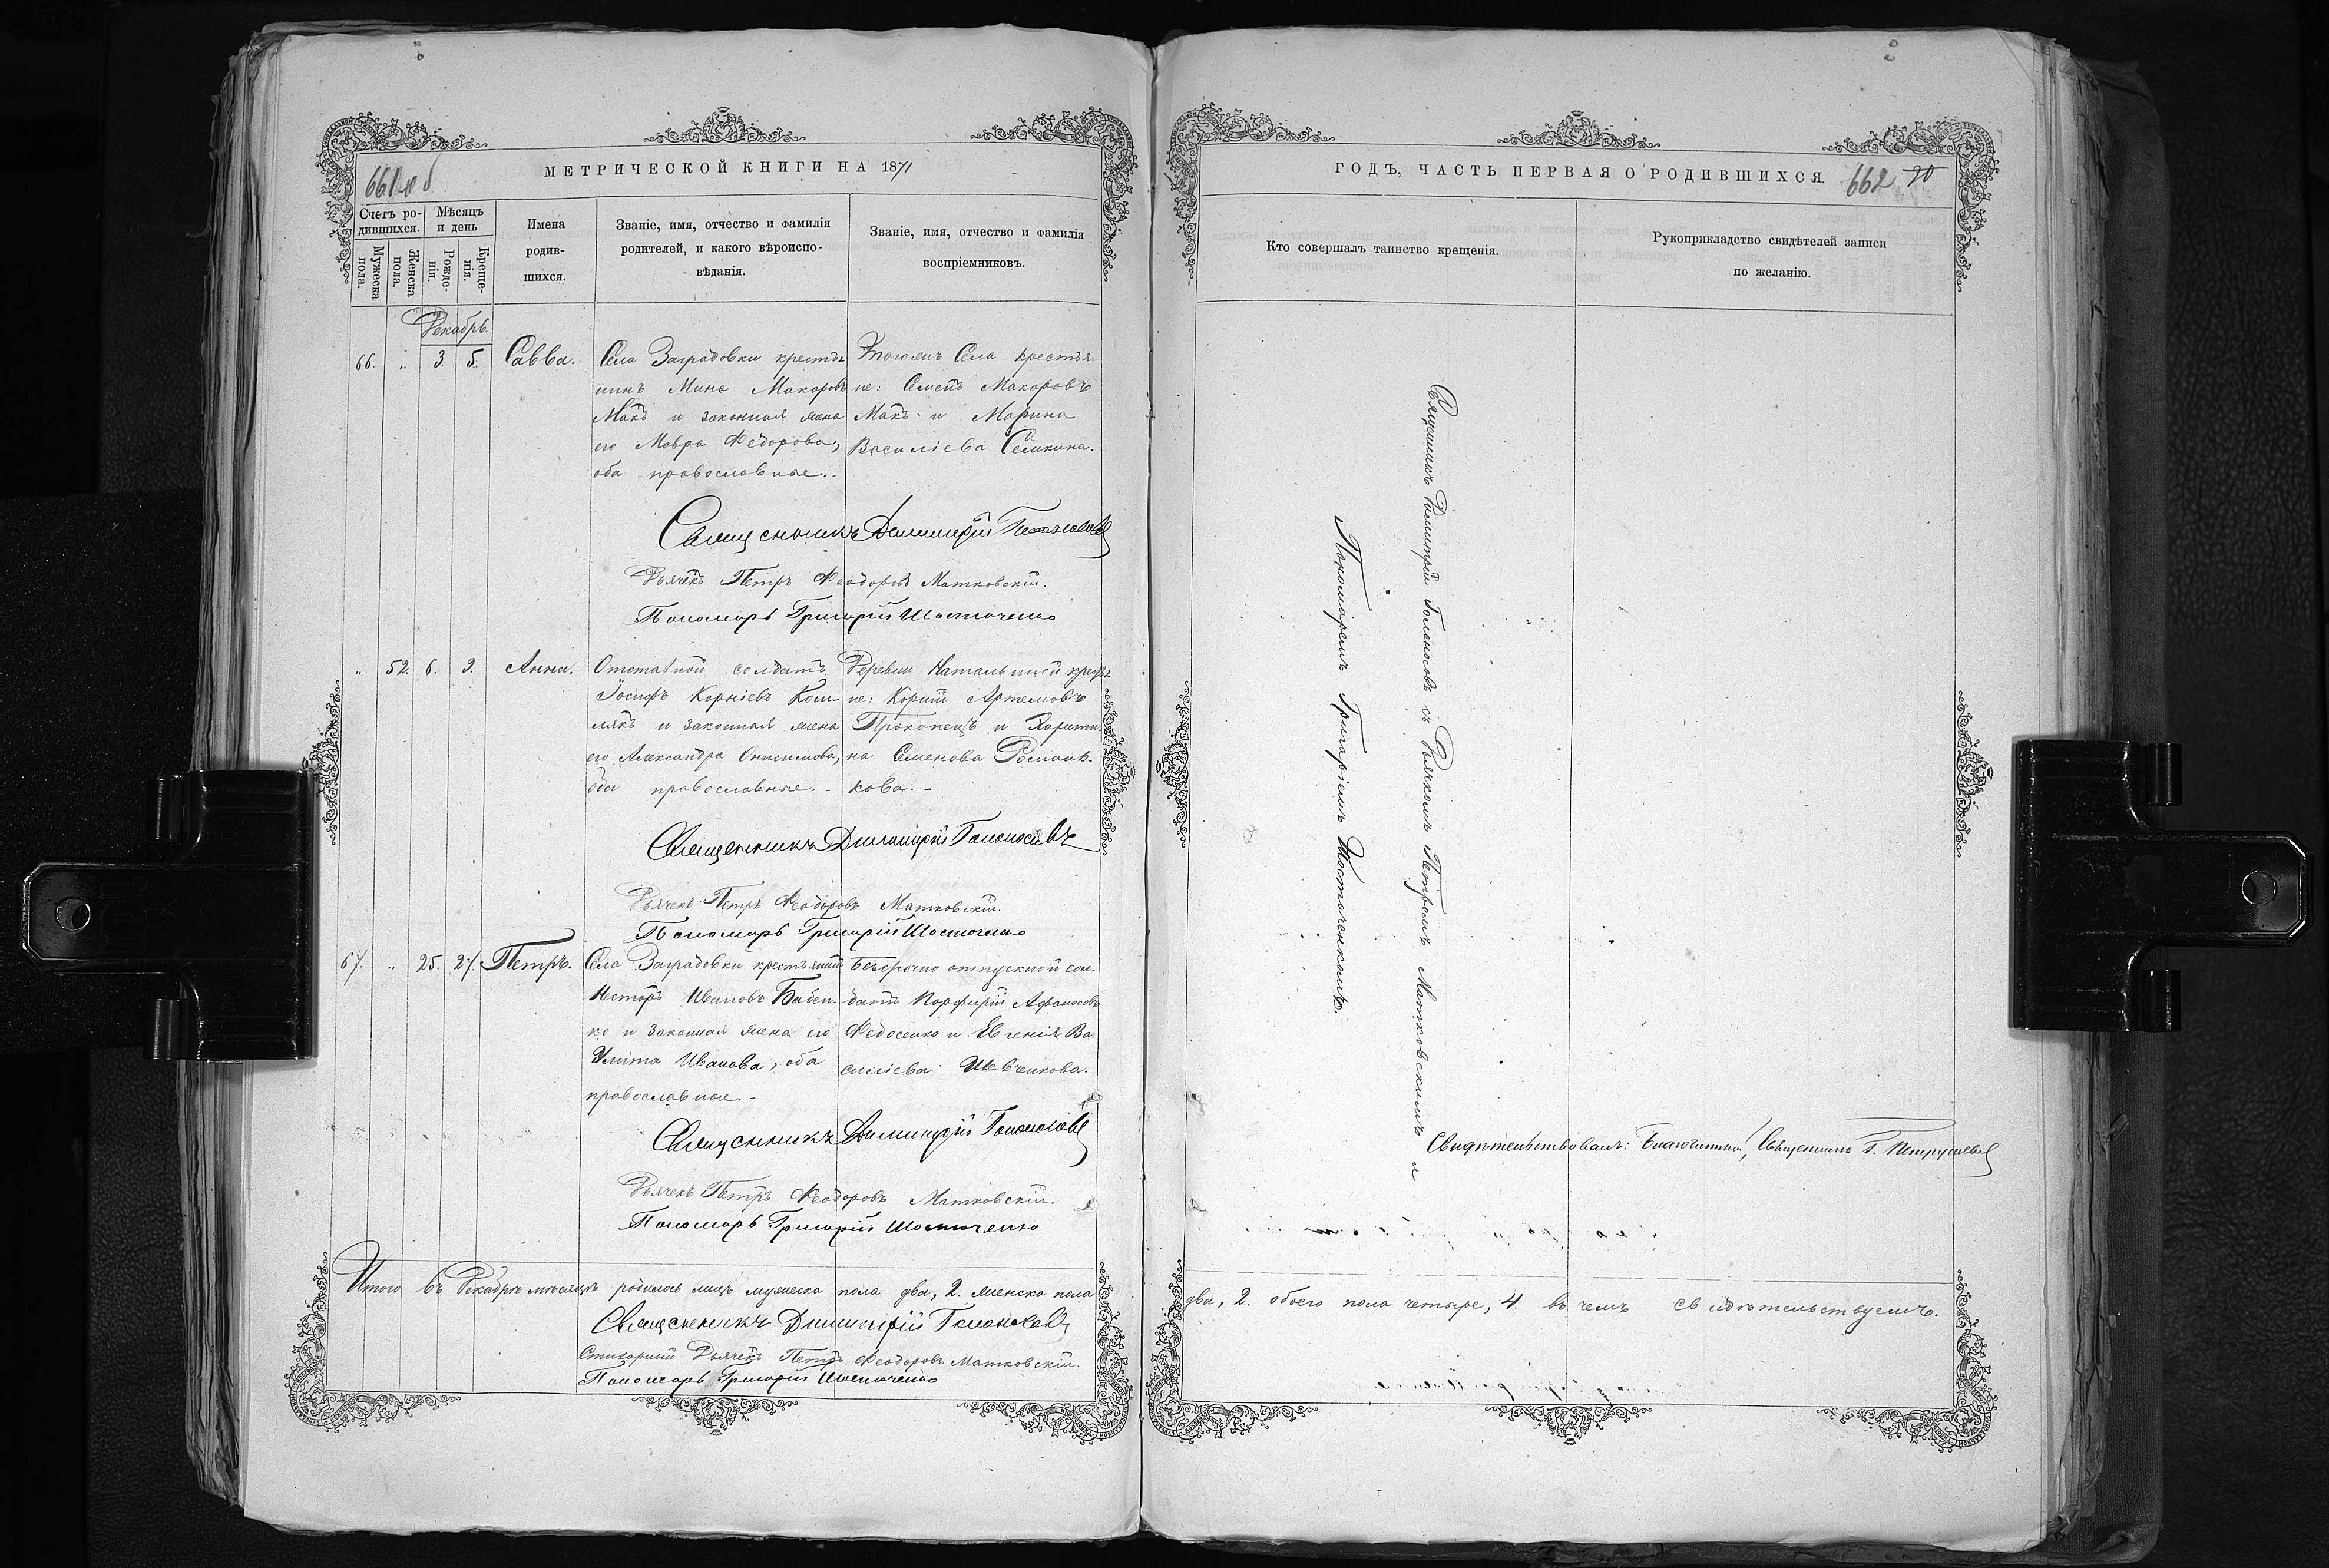 661 об
МЕТРИЧЕСКОЙ КНИГИ НА 1871
Счетъ ро-
дившихся.
Мѣсяцъ
и день
Мужеска
пола.
Женска
пола.
Рожде-
нія.
Креще-
нія.
Имена
родив-
шихся.
Званіе, имя, отчество и фамилія
родителей, и какого вѣроиспо-
вѣданія.
Званіе, имя, отчество и фамилія
воспріемниковъ.
Декабрь.
66. „ 3. 5. Савва.
Села Заградовки крестья
нинъ Мина Макаровъ
Макъ и законная жена
его Мавра Федорова,
оба православные.
Тогожъ Села крестья
не: Семенъ Макаровъ
Макъ и Марина
Василіева Семкина.
Священникъ Димитрій Голоносовъ
Дьячекъ Петръ Феодоровъ Матковскій.
Пономарь Григорій Шостаченко
„ 52. 6. 9. Анна.
Отставной солдатъ
Іосифъ Корніевъ
и законная жена
его Александра Онисимова,
оба православные. -
Деревни Натальиной крестья
не: Корній Артемовъ
Прокопецъ и Харити
на Семенова Романь-
кова. -
Священникъ Димитрій Голоносовъ
Дьячекъ Петръ Феодоровъ Матковскій.
Пономарь Григорій Шостаченко
67. „ 25. 27. Петръ.
Села Заградовки крестьянинъ
Несторъ Ивановъ Бабен-
ко и законная жена его
Улита Иванова, оба
православные. -
Безсрочно отпускной сол-
датъ Порфирій Афанасовъ
Федосенко и Евгенія Ва
силіева Шевченкова.
Священникъ Димитрій Голоносовъ
Дьячекъ Петръ Феодоровъ Матковскій.
Пономарь Григорій Шостаченко
Итого въ Декабрѣ мѣсяцѣ родилось лицъ мужеска пола два, 2. женска пола
Священникъ Димитрій Голоносовъ
Стихарный Дьячекъ Петръ Феодоровъ Матковскій.
Пономарь Григорій Шостаченко
ГОДЪ, ЧАСТЬ ПЕРВАЯ О РОДИВШИХСЯ
662 90
Кто совершалъ таинство крещенія.
Рукоприкладство свидѣтелей записи
по желанію.
Священникъ Димитрій Голоносовъ съ Дьячкомъ Петромъ Матковскимъ и
Пономаремъ Григоріемъ Шостаченкомъ.
Свидѣтельствовалъ: Благочинный, Священникъ Г.
два, 2. обоего пола четыре, 4. въ чемъ свидѣтельствуемъ.